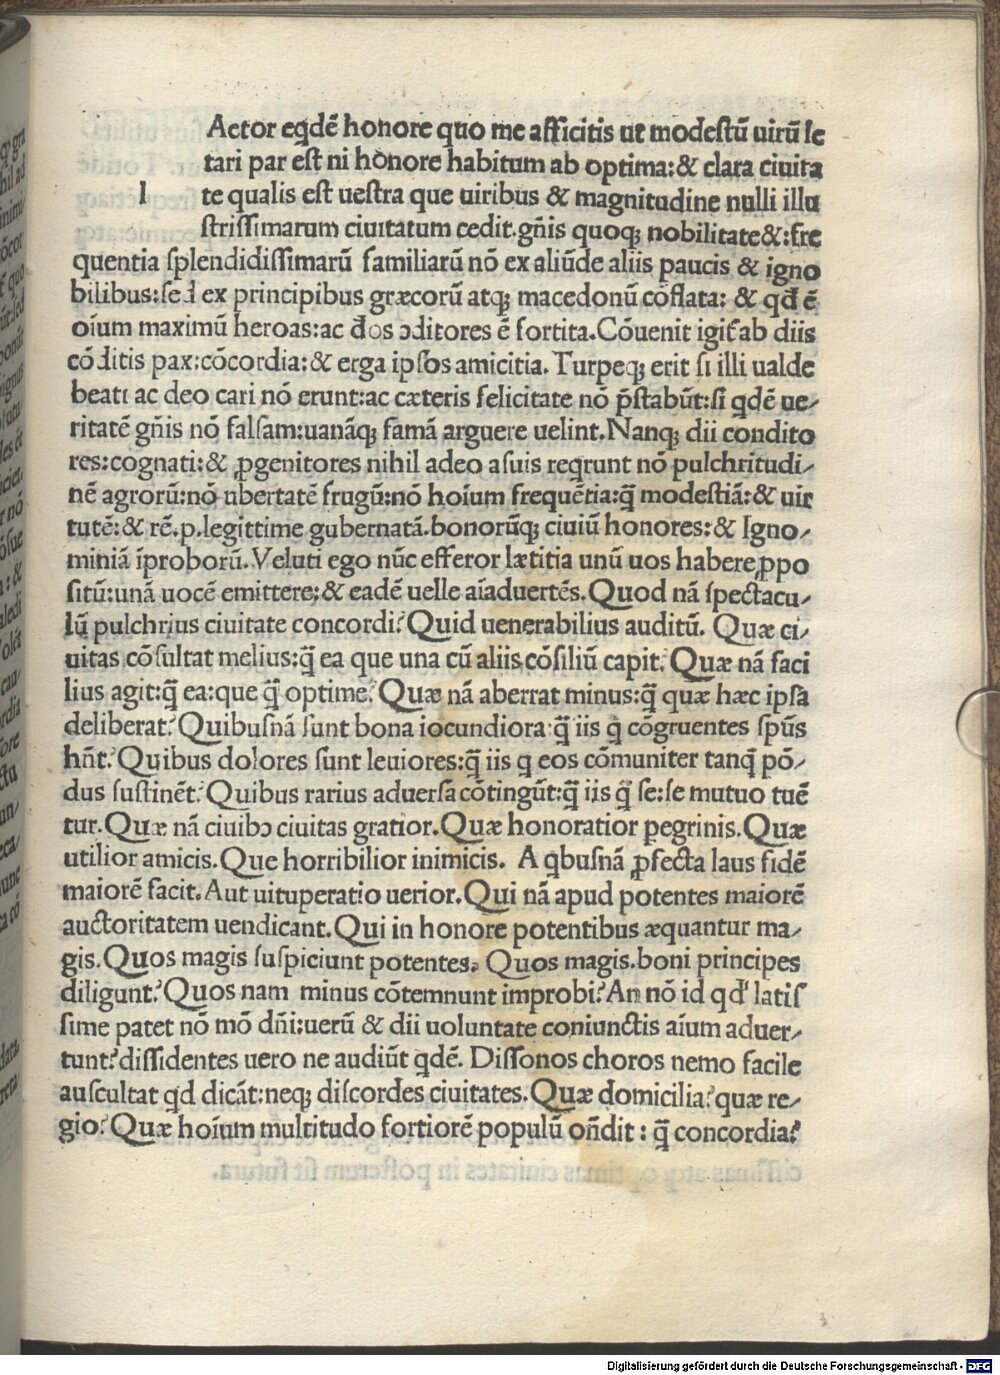 Aetor eqdē honore quo me afficitis ut modestū uirū le
tari par est ni honore habitum ab optima:& clara ciuita
l te qualis est uestra que uiribus & magnitudine nulli illu
strissimarum ciuitatum cedit.gn̄is quoqꝫ nobilitate&:fre
quentia splendidissimarū familiarū nō ex aliūde aliis paucis & igno
bilibus:sed ex principibus græcorū atqꝫ macedonū cōflata: & qđ ē
oīum maximū heroas:ac đos ↄditores ē sortita.Cōuenit igit̃ ab diis
cōditis pax:cōcordia:& erga ipsos amicitia. Turpeqꝫ erit si illi ualde
beati ac deo cari nō erunt:ac cæteris felicitate nō p̄stabūt:si qdē ue-
ritatē gn̄is nō falsam:uanāqꝫ famā arguere uelint.Nanqꝫ dii condito
res:cognati:& ꝓgenitores nihil adeo asuis reqrunt nō pulchritudi-
nē agrorū:nō ubertatē frugū:nō hoīum frequētia:q̄ modestiā:& uir
tutē:& rē.p.legittime gubernatā.bonorūqꝫ ciuiū honores:& Igno-
miniā īproborū.Veluti ego nūc efferor lætitia unū uos habere ꝓpo
sitū:unā uocē emittere:& eadē uelle aīaduertēs.Quod nā spectacu-
lū pulchrius ciuitate concordi? Quid uenerabilius auditū. Quæ ci-
uitas cōsultat melius:q̄ ea que una cū aliis cōsiliū capit. Quæ nā faci
lius agit:q̄ ea:que q̄ optime? Quæ nā aberrat minus:q̄ quæ hæc ipsa
deliberat? Quibusnā sunt bona iocundiora:q̄ iis q̇ cōgruentes sp̄us
hn̄t? Quibus dolores sunt leuiores:q̄ iis q eos cōmuniter tanq̄ pō-
dus sustinēt? Quibus rarius aduersa cōtingūt:q̄ iis q̇ se:se mutuo tuē
tur.Quæ nā ciuibↄ ciuitas gratior.Quæ honoratior pegrinis.Quæ
utilior amicis.Que horribilior inimicis. A qbusnā ꝓfecta laus fidē
maiorē facit.Aut uituperatio uerior.Qui nā apud potentes maiorē
auctoritatem uendicant.Qui in honore potentibus æquantur ma-
gis.Quos magis suspiciunt potentes. Quos magis.boni principes
diligunt? Quos nam minus cōtemnunt improbi? An nō id qđ latis
sime patet nō mō dn̄i:uerū & dii uoluntate coniunctis aīum aduer-
tunt? dissidentes uero ne audiūt qdē. Dissonos choros nemo facile
auscultat qd dicāt:neqꝫ discordes ciuitates.Quæ domicilia? quæ re-
gio? Quæ hoīum multitudo fortiorē populū on̄dit : q̄ concordia?
Digitalisierung gefördert durch die Deutsche Forschungsgemeinschaft - DFG